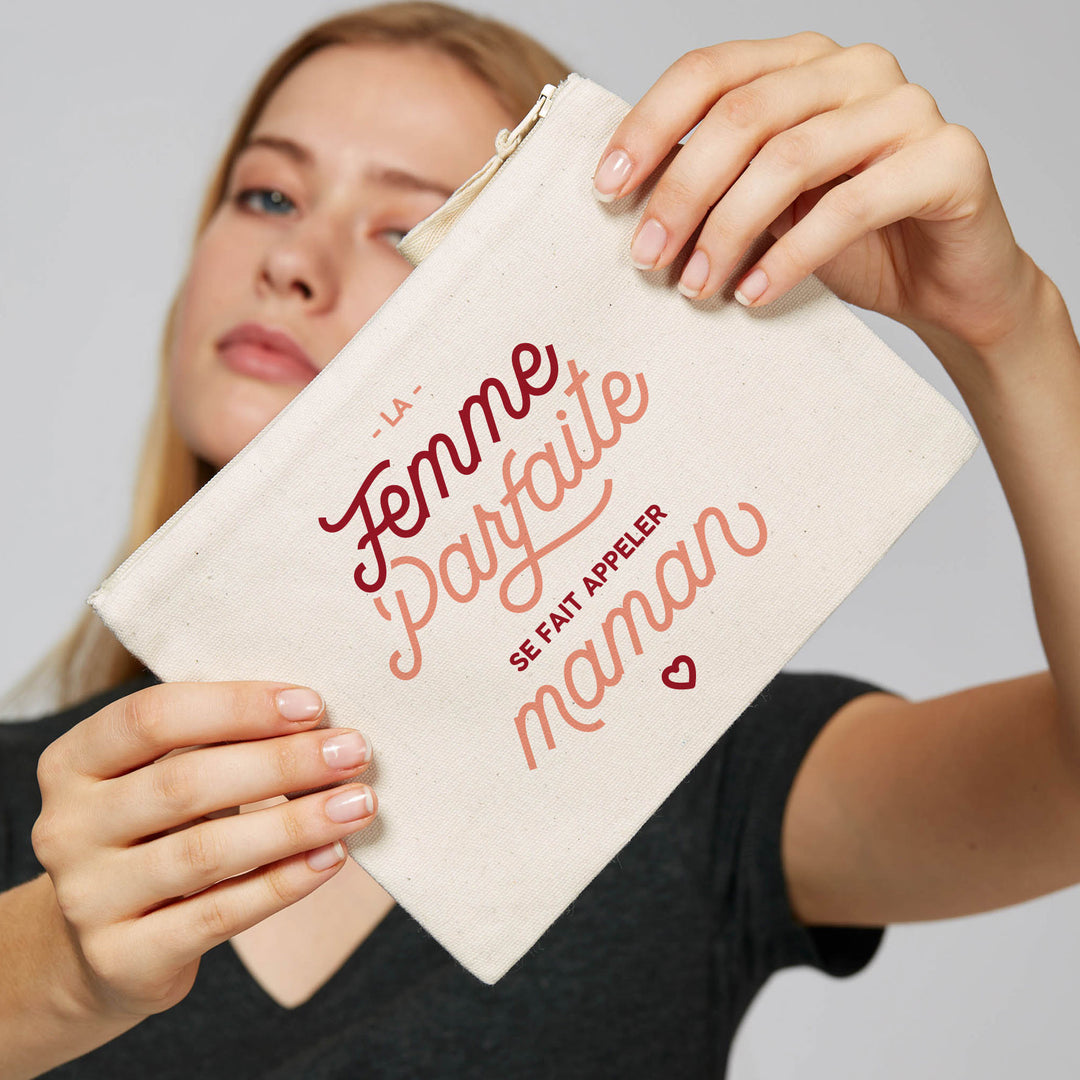 - LA -
Femme
Parfaite
SE FAIT APPELER
maman